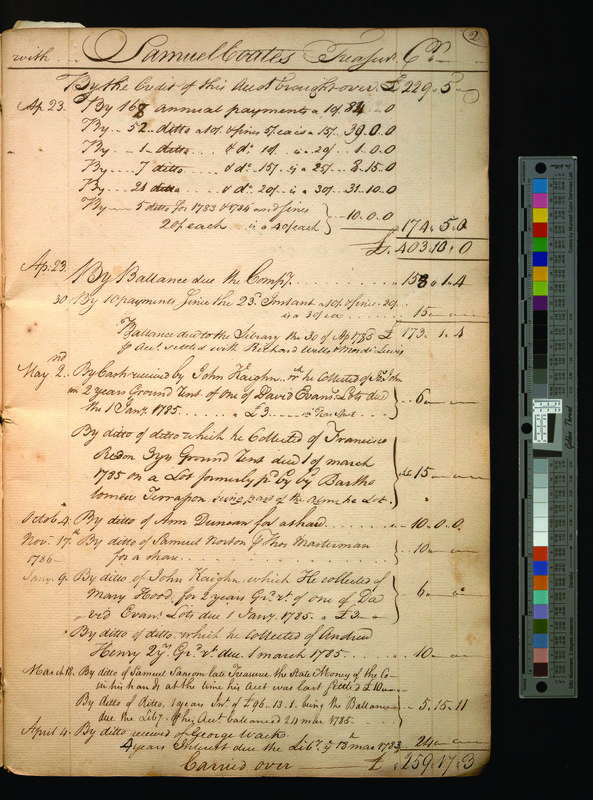 2
with Samuel Coates Treasurr. Cr.
By the Credit of this Acct brought over £ 229.5
Ap. 23. By 168 annual payments a 10/. 84.0.0
By 52 ditto a 10/. & fines 5/ ea is a 15/. 39.0.0
By 1 ditto & do. 10/. is a 20/. 1.0.0
By 7 ditto & do. 15/. is a 25/. 8.15.0
By 21 ditto & do. 20/. is a 30/. 31.10.0
By 5 ditto for 1783 & 1784 and fines
20/ each is a 40/ each 10.0.0 174.5.0
£. 403.10.0
Ap. 23. By Ballance due the Compy. 158.1.4
30 By 10 payments Since the 23d. Instant a 10/. & fines 20/.
is a 30/ ea 15
Ballance due to the Library the 30 of Ap 1785 £ 173.1.4
Acct. settled with Richard Wells & Mordi. Lewis
May 2nd By Cash received by John Kaighn wch. he Collected of
on 2 years Ground Rent of one of David Evans's Lots due
the 1 Jany. 1785. a £3 6
By ditto of ditto which he Collected of Francisco
Ground Rent due 1 of march
1785 on a Lot formerly pd. by Bartho
lomew Terrapon being part of the same he Let. 15
Octob. 4. By ditto of Ann Duncan for a share 10.0.0.
Nov. 17. By ditto of Samuel Norton & Thos Masterman
1786 for a share 10
Jany. 9. By ditto of John Kaighn which He collected of
Mary Hood, for 2 years Gr. rt. of one of Da
vid Evans's Lots due 1 Jany. 1785. a £3 6
By ditto of ditto which he collected of Andrew
Henry 2 y. Gr. rt. due 1 march 1785 10
March 18. By ditto of Samuel Sansom late Treasurer, the State Money of the Co
in his hands at the time his Acct was last settled £10
By ditto of Ditto, 1 years Int. of £96.13.1. being the Ballance
due the Liby. when his Acct ballanced 24 mar 1785 5.15.11
April 4. By ditto received of George Wacks
4 years Interest due the Liby. 18th mar 1783 24
Carried over £ 259.17.3